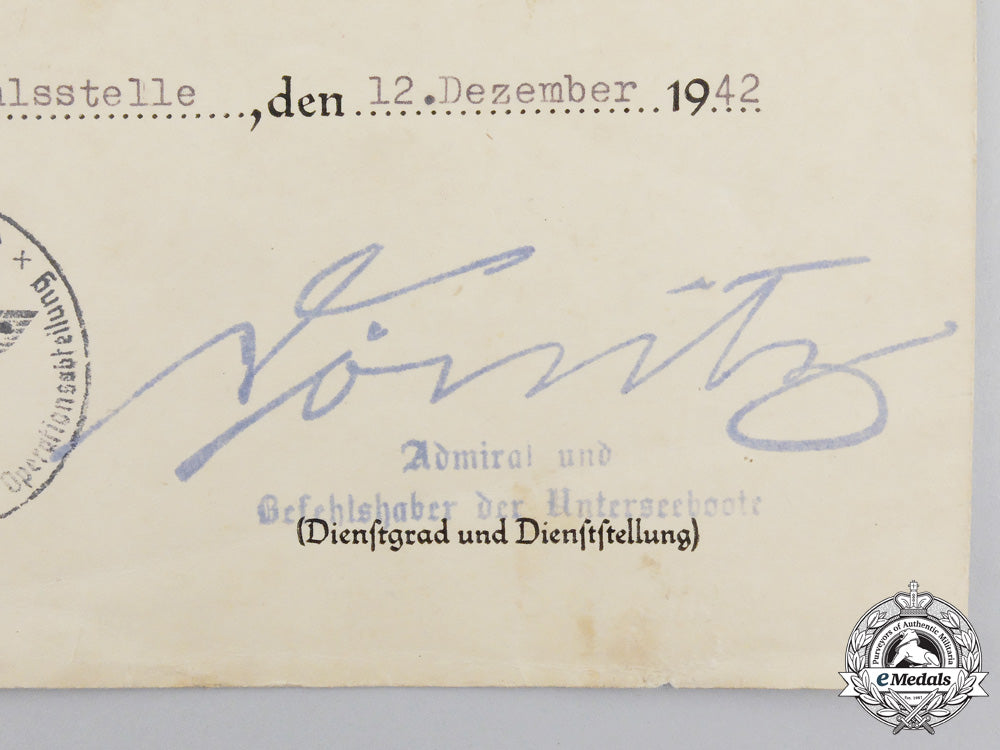 lsstelle , den 12.Dezember 1942
Operationsabteilung
Dönitz
Admiral und
Befehlshaber der Unterseeboote
(Dienstgrad und Dienststellung)
Purveyors of Authentic Militaria
eMedals
Est. 1987